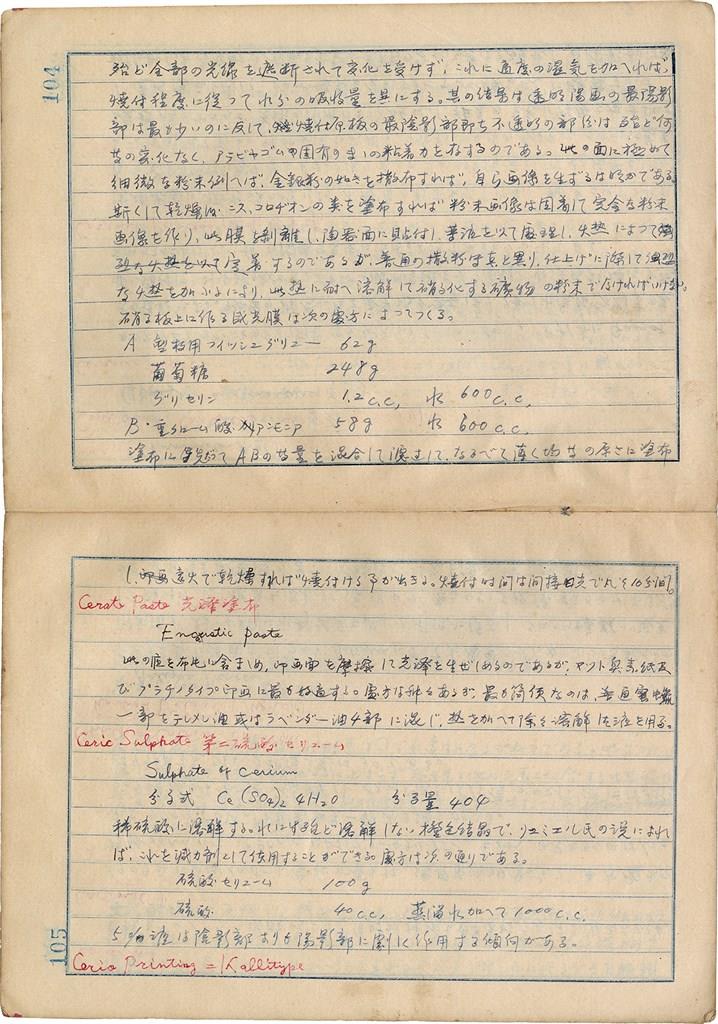 104
殆ど全部の光線を遮断されて変化を受けず、これに適度の湿気を加へれば、
焼付程度に従つて水分の吸収量を異にする。其の結果は透明陽画の最陽影
部は最も少いのに反して、焼付原板の最陰影部即ち不透明の部分は殆ど何
等の変化なく、アラビヤゴム固有のまゝの粘着力を存するのである。此の面に極めて
細微な粉末例へば、金銀粉の如きを撒布すれば、自ら画像を生ずるは明かである。
斯くして乾燥後、ニス、コロヂオンの類を塗布すれば粉末画像は固着して完全な粉末
画像を作り、此膜を剥離し、陶器面に貼付し、薬液を以て処理し、火熱によつて
な火熱を以て定着するのであるが、普通の撒粉写真と異り、仕上げに際して強烈
な火熱を加ふるにより、此熱に耐へ溶解して硝子化する礦物の粉末でなければいけない。
硝子板上に作る感光膜は次の處方によつてつくる。
A 製版用フイッシュグリュー 62g
葡萄糖 248g
グリセリン 1.2c.c, 水 600c.c,
B. 重クローム酸アンモニア 58g 水 600c.c,
塗布に先だつてABの等量を混合して濾過して、なるべく薄く均等の厚さに塗布
し、遠火で乾燥すれば焼付ける事が出来る。焼付時間は間接日光で凡そ10分間。
Cerate Paste 光澤塗布
Enqustic paste
此の液を布片に含ませ、印画面を摩擦して光澤を生ぜしめるのであるが、マット臭素紙及
びプラチノタイプ印画に最も好適する。處方は種々あるが、最も簡便なのは、普通蜜蝋
一部をテレメン油或はラベンダー油4部に混じ、熱を加へて除々溶解した液を用る。
Ceric Sulphate 第二硫酸セリューム
Sulphate of cerium
分子式 Ce(SO4)2 4H2O 分子量 404
稀硫酸に溶解する。水には殆ど溶解しない橙色結晶で、リュミエル氏の説によれ
ば、これを減力剤として使用することができる。處方は次の通りである。
硫酸セリューム 100g
硫酸 40c.c, 蒸溜水加へて1000c.c.
5%液は陰影部よりも陽影部に劇しく作用する傾向がある。
105
Ceria Printing = Kallitype